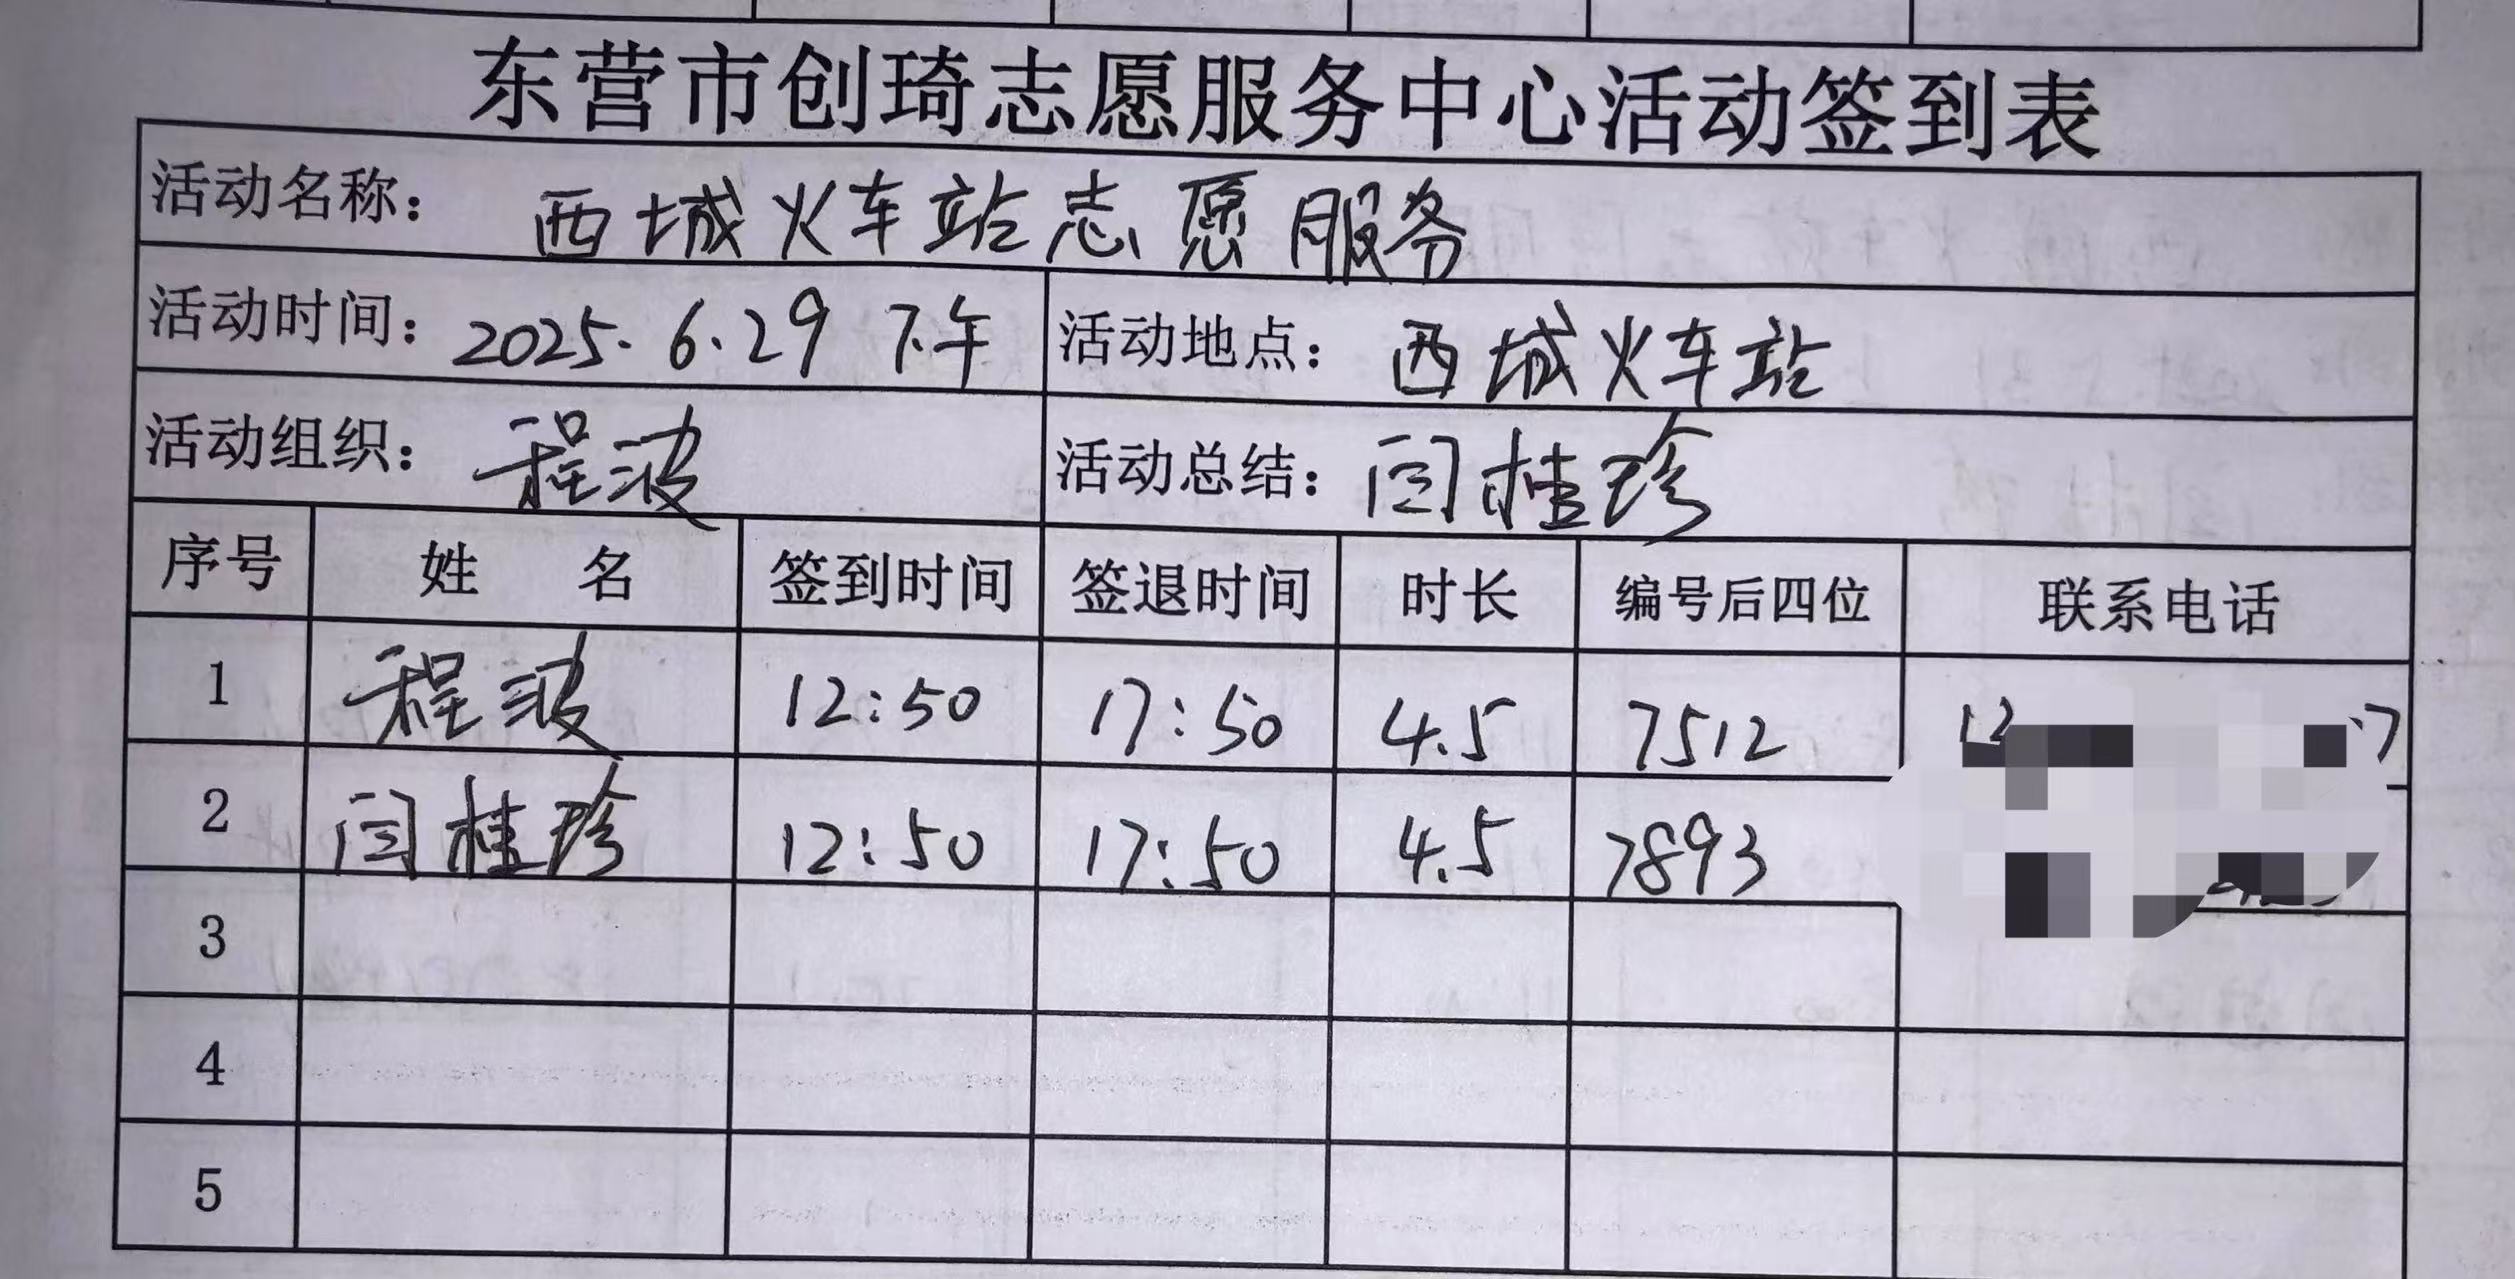 东营市创琦志愿服务中心活动签到表
活动名称： 西城火车站志愿服务
活动时间：2025.6.29 下午 活动地点： 西城火车站
活动组织： 程波 活动总结： 闫桂珍
序号 姓 名 签到时间 签退时间 时长 编号后四位 联系电话
1 程波 12:50 17:50 4.5 7512
2 闫桂珍 12:50 17:50 4.5 7893
3
4
5